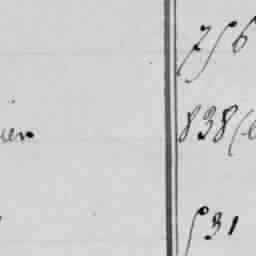 756
ien 838(
531